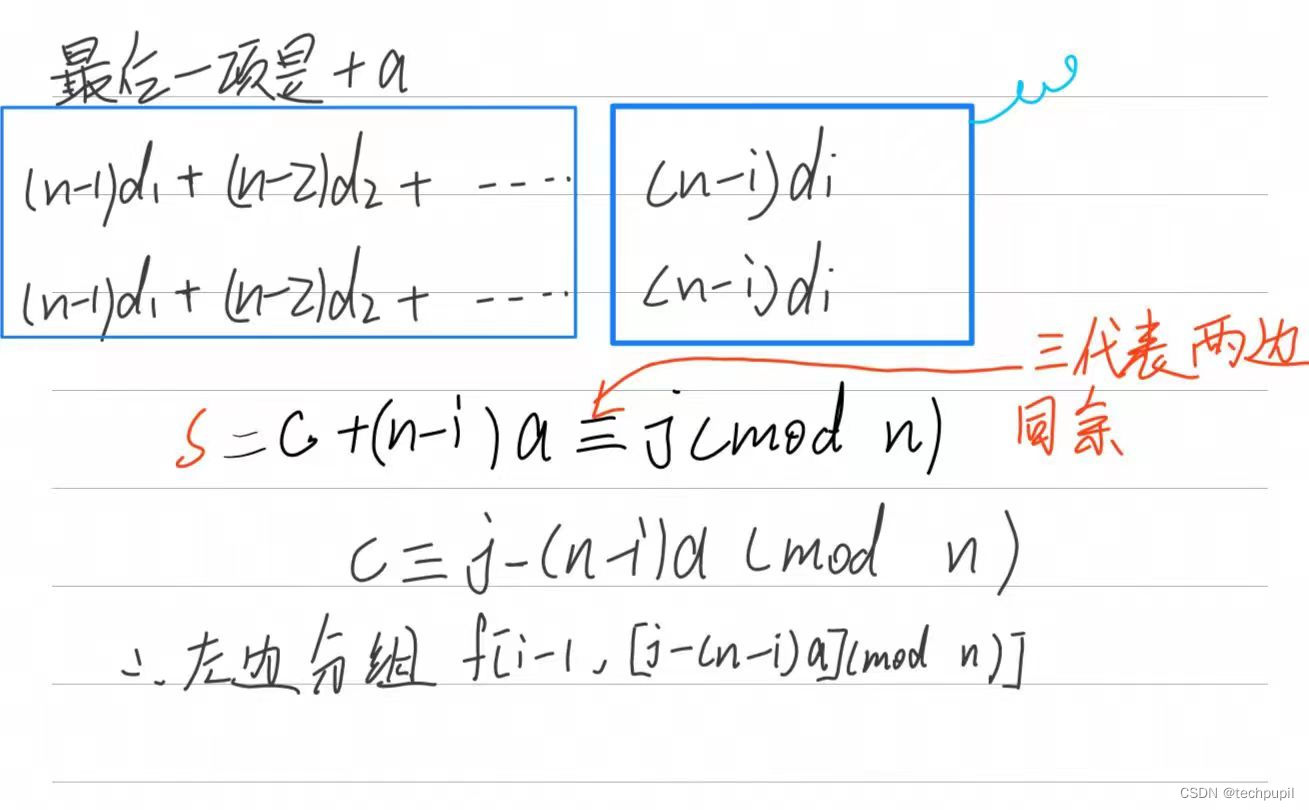 最后一项是+a
(n-1)d₁+(n-2)d₂+ ----- (n-i)di
(n-1)d₁+(n-2)d₂+ ----- (n-i)di
三代表两边
同余
S=C+(n-i)a≡j(mod n)
C≡j-(n-i)a (mod n)
∴左边分组 f[i-1,[j-(n-i)a](mod n)]
CSDN @techpupil